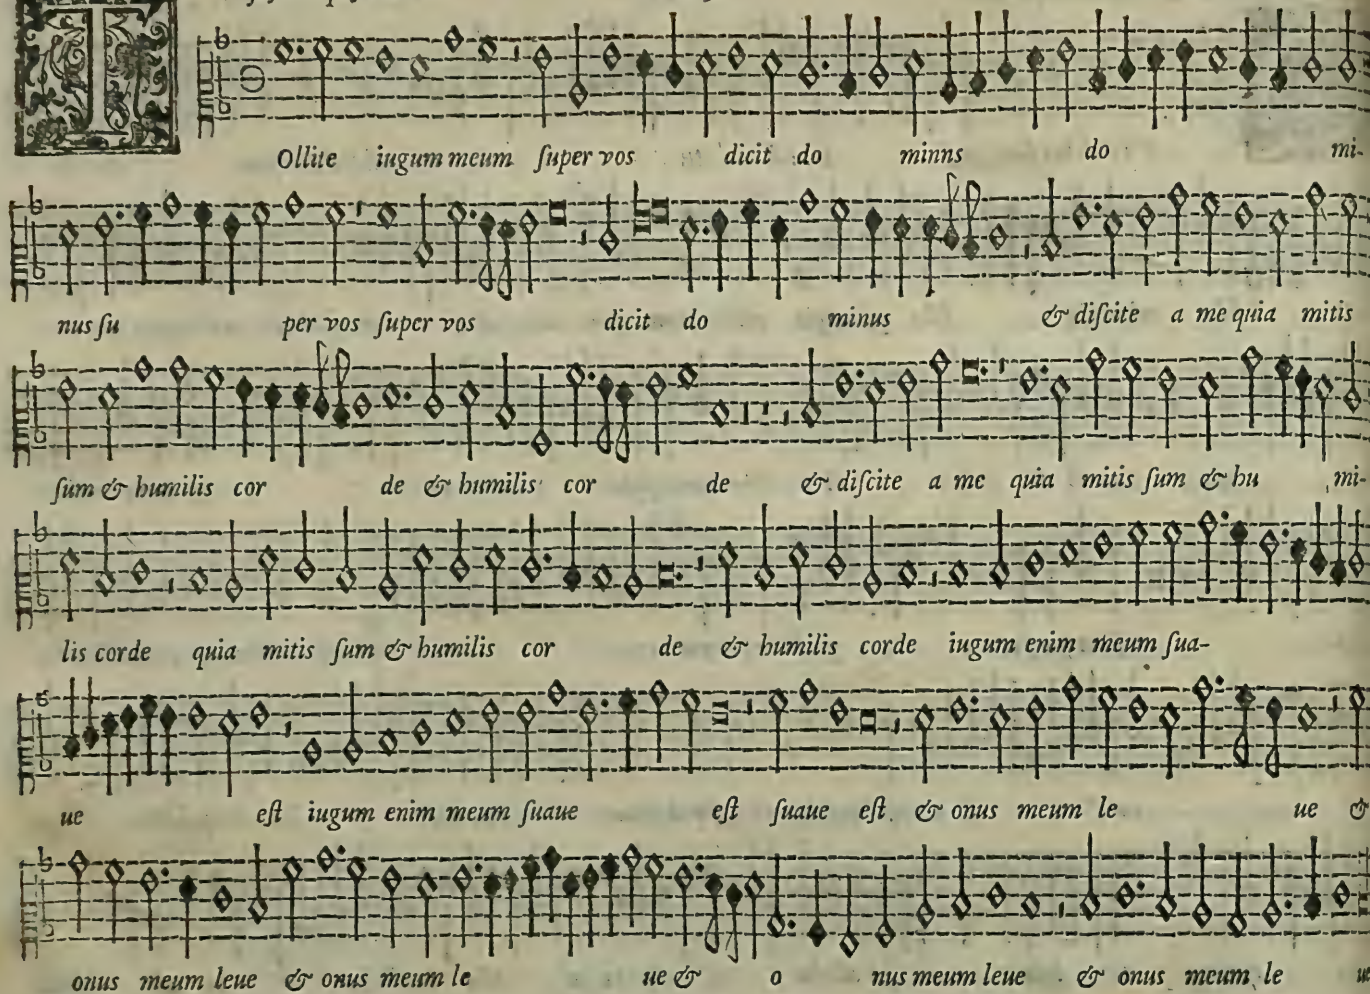 T
Ollite iugum meum ſuper vos dicit do minns do mi-
nus ſu per vos ſuper vos dicit do minus & diſcite a me quia mitis
ſum & humilis cor de & humilis cor de & diſcite a me quia mitis ſum & hu mi-
lis corde quia mitis ſum & humilis cor de & humilis corde iugum enim meum ſua-
ue eſt iugum enim meum ſuaue eſt ſuaue eſt & onus meum le ue &
onus meum leue & onus meum le ue & o nus meum leue & onus meum le